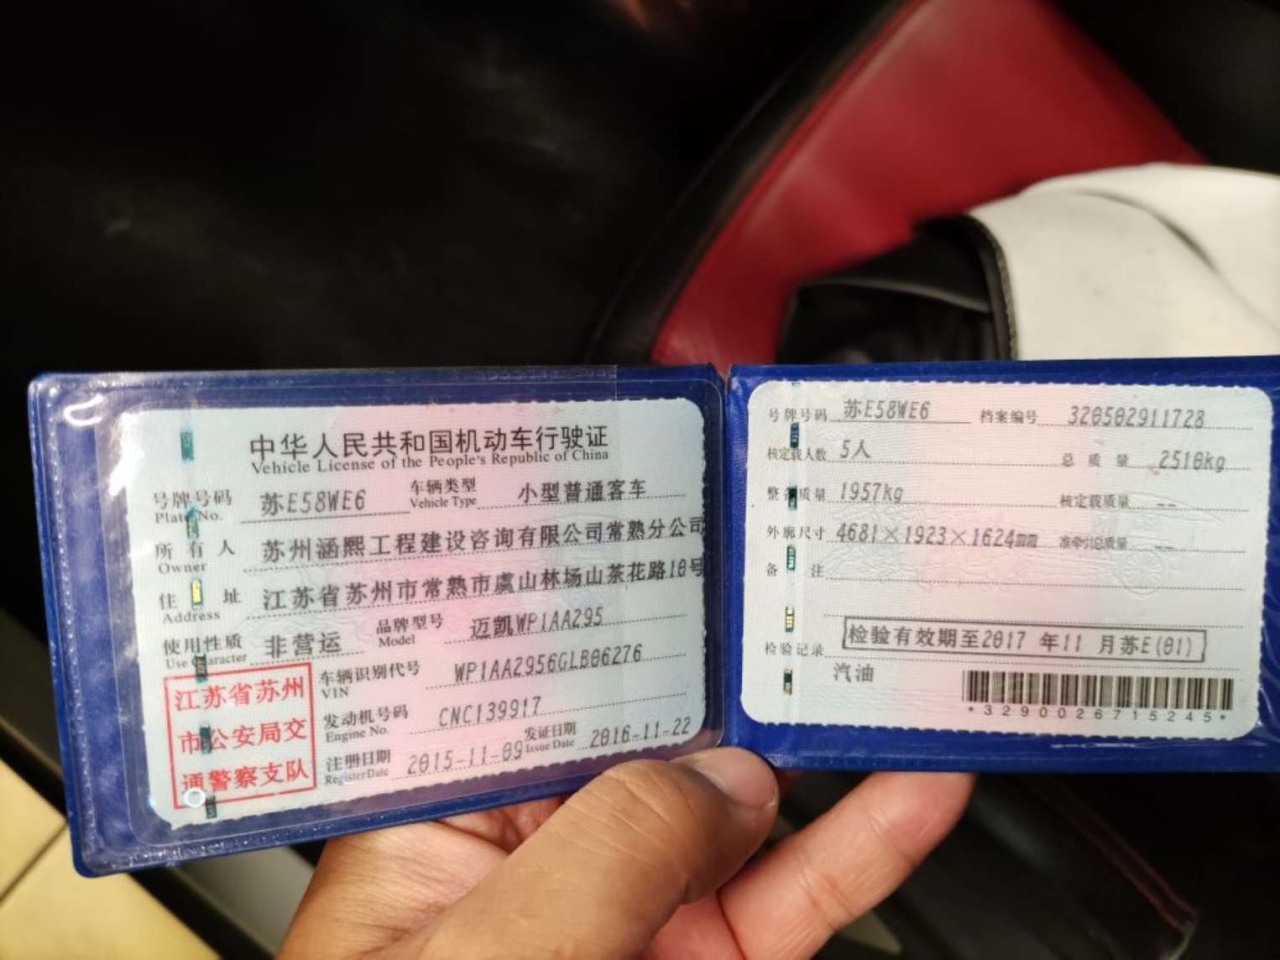 中华人民共和国机动车行驶证
Vehicle License of the People's Republic of China
号牌号码 苏E58WE6 车辆类型 小型普通客车
Plate No. Vehicle Type
所有人 苏州涵熙工程建设咨询有限公司常熟分公司
Owner
住址 江苏省苏州市常熟市虞山林场山茶花路10号
Address
使用性质 非营运 品牌型号 迈凯WP1AA295
Use Character Model
江苏省苏州
市公安局交
通警察支队
车辆识别代号 WP1AA2956GLB06276
VIN
发动机号码 CNC139917
Engine No.
注册日期 2015-11-09 发证日期 2016-11-22
Register Date Issue Date
号牌号码 苏E58WE6 档案编号 320502911728
核定载人数 5人 总质量 2510kg
整备质量 1957kg 核定载质量 --
外廓尺寸 4681×1923×1624mm 准牵引总质量 --
备注
检验记录 检验有效期至2017 年11 月苏E(01)
汽油
*3290026715245*